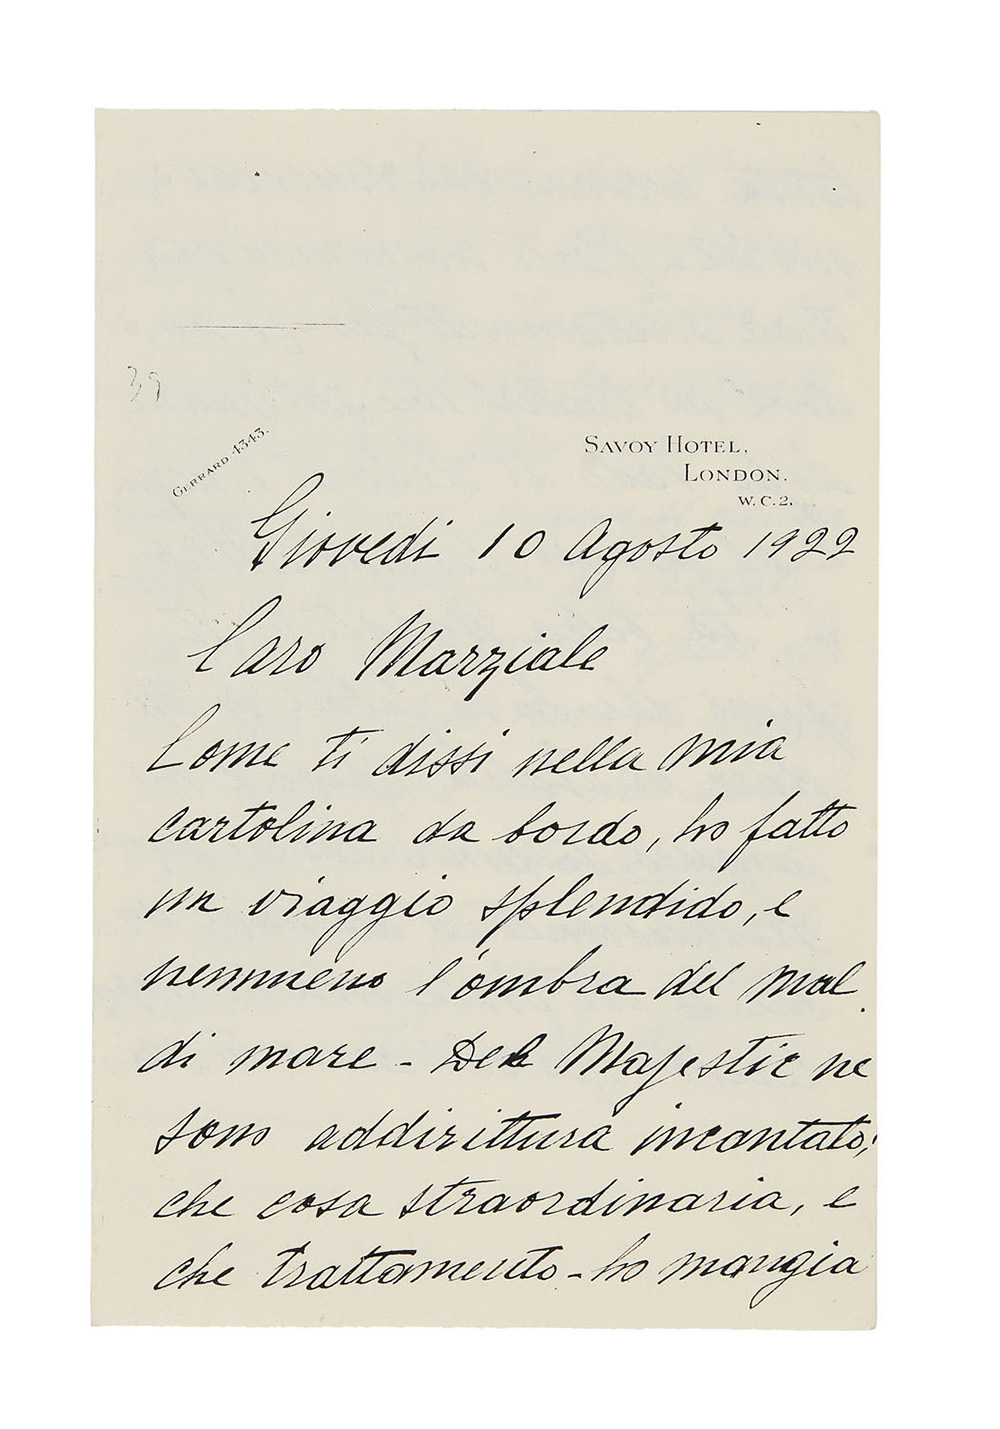 39
GERRARD 4343.
SAVOY HOTEL,
LONDON.
W.C.2.
Giovedi 10 Agosto 1922
Caro Marziale
Come ti dissi nella mia
cartolina da bordo, ho fatto
un viaggio splendido, e
nemmeno l'ombra del mal
di mare - Del Majestic ne
sono addirittura incantato;
che cosa straordinaria, e
che trattamento - ho mangia